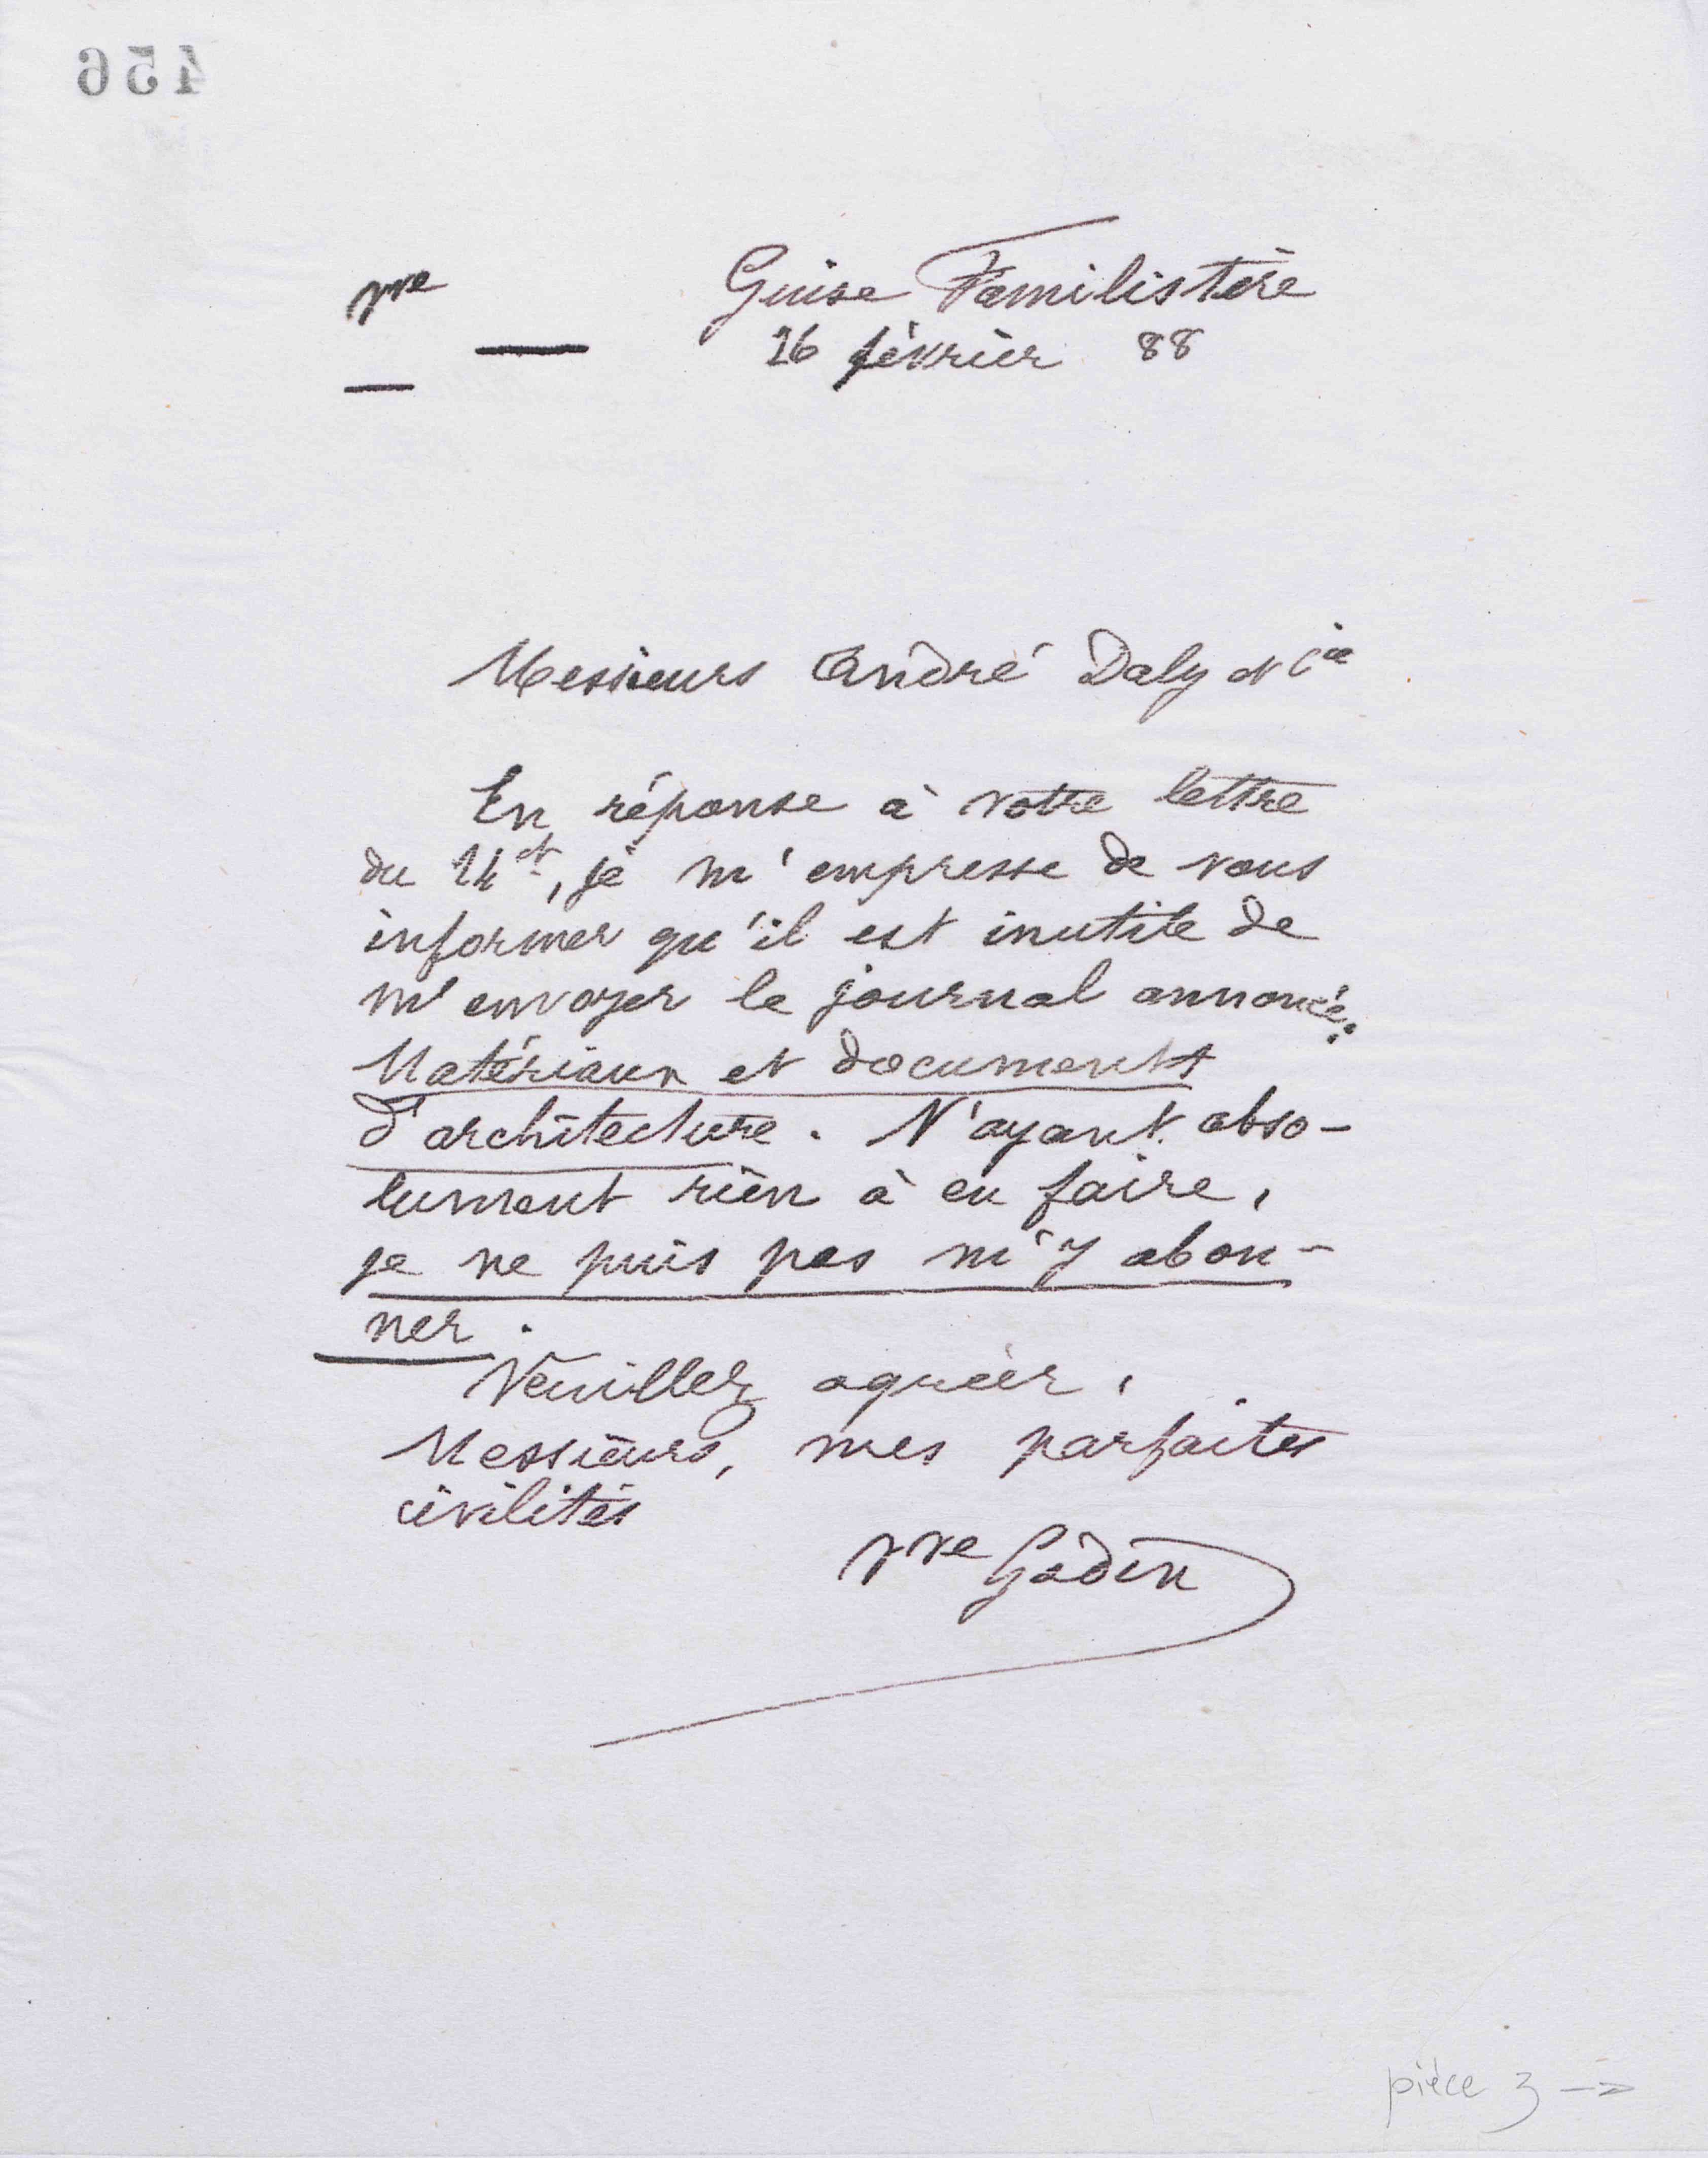 456
Vve
Guise Familistère
16 février 88
Messieurs André Daly et Cie
En réponse à votre lettre
du 14 ct, je m'empresse de vous
informer qu'il est inutile de
m'envoyer le journal annoncé:
Matériaux et documents
d'architecture. N'ayant abso-
lument rien à en faire,
je ne puis pas m'y abon-
ner.
Veuillez agréer,
Messieurs, mes parfaites
civilités
Vve Godin
pièce 3 ->